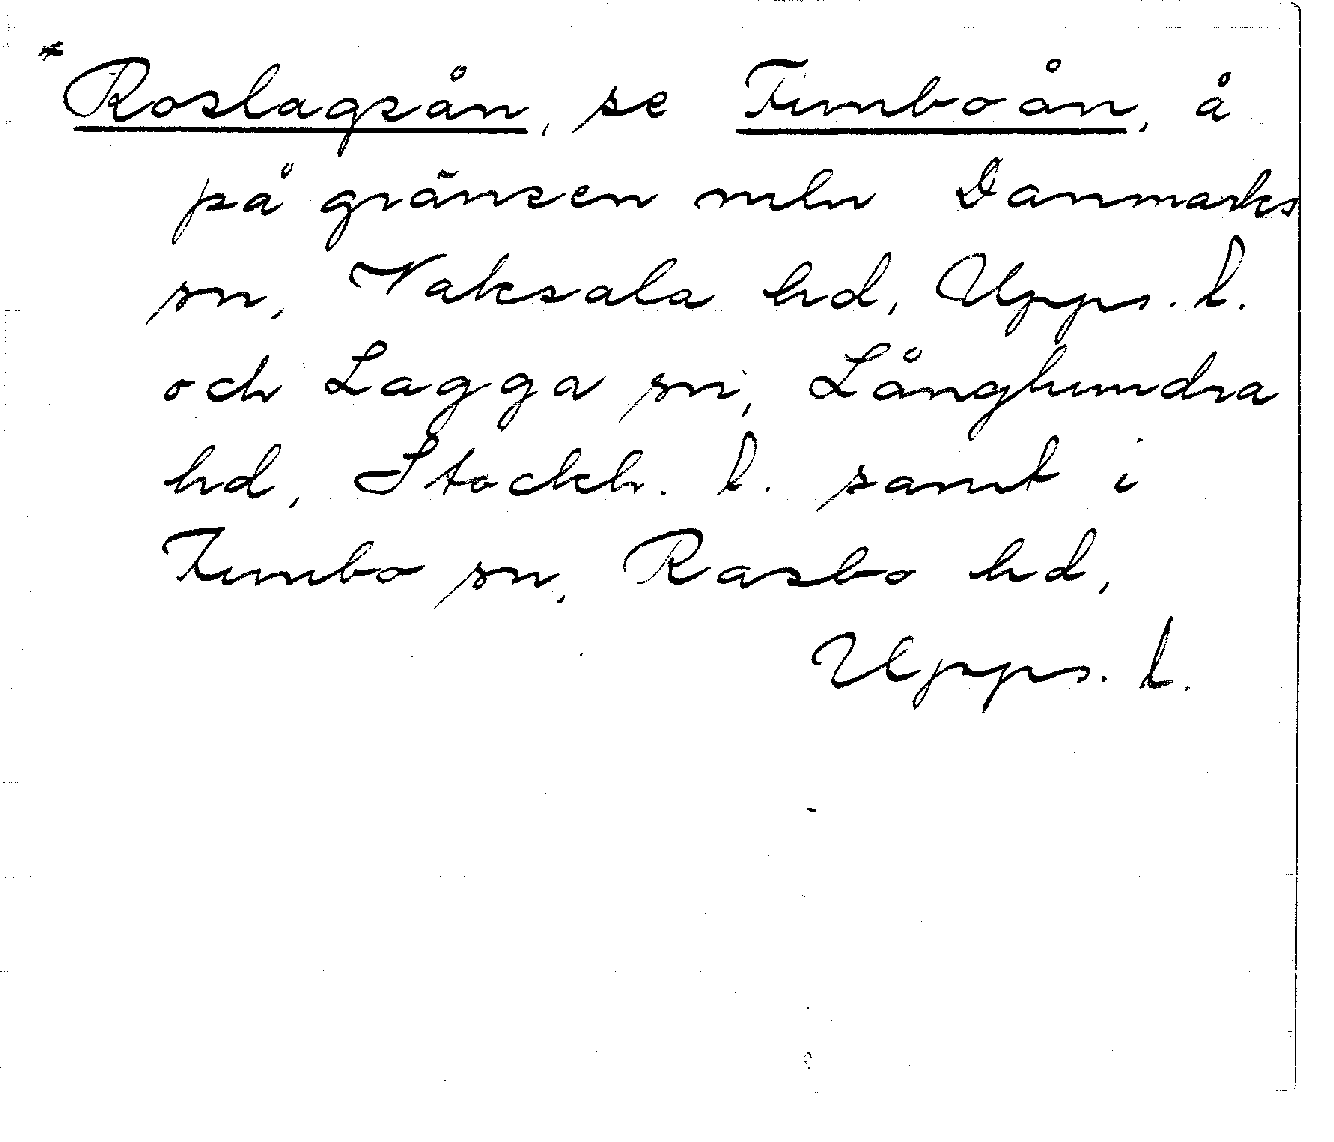 *Roslagsån, se Funboån, å
på gränsen mln Danmarks
sn, Vaksala hd, Upps. l.
och Lagga sn, Långhundra
hd, Stockh. l. samt i
Funbo sn, Rasbo hd,
Upps. l.